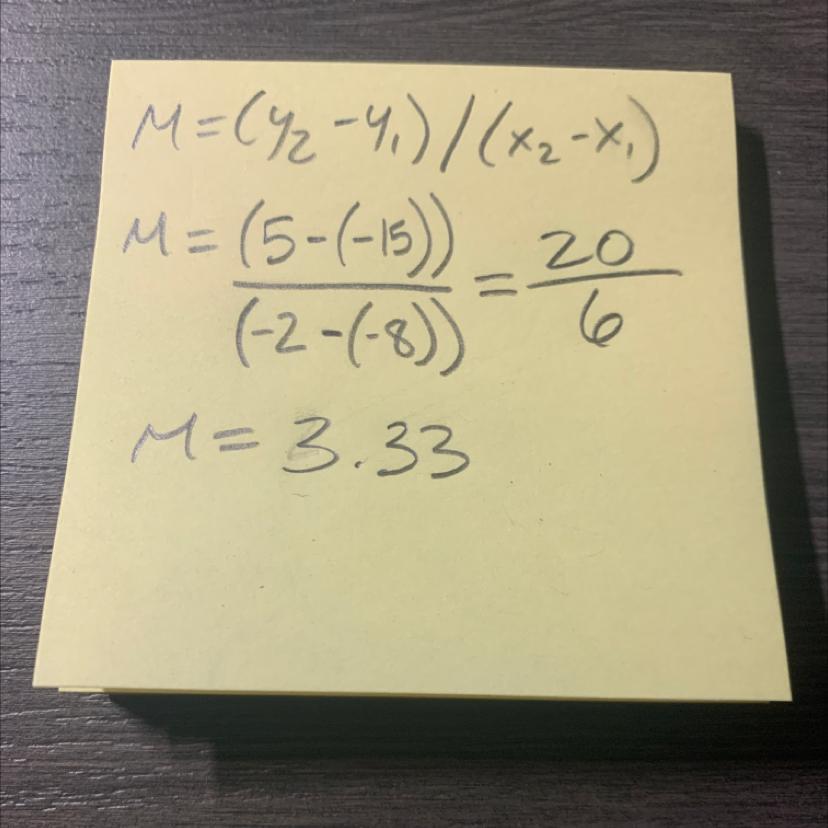 M=(y₂-y₁)/(x₂-x₁)
M=(5-(-15))/(-2-(-8))=20/6
M=3.33